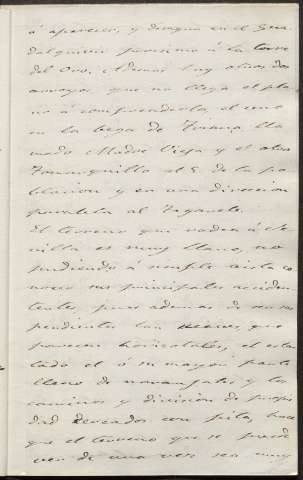 á aparecer, y desagua en el Gua-
dalquivir proximo á la torre
del Oro. Ademas hay otros dos
arroyos que no llega el pla-
no á comprenderlos, el uno
en la vega de Triana lla-
mado Madre Vieja y el otro
Tamarguillo al E. de la po-
blacion y en una direccion
paralela al Tagarete.
El terreno que rodea á Se-
villa es muy llano, no
pudiendo á simple vista co-
nocer sus principales acciden-
tes, pues ademas de ser sus
pendientes tan suaves, que
parecen horizontales, el estar
todo el ó su mayor parte
lleno de naranjales y los
caminos y division de propie
dad cercados con pitas, hace
que el terreno que se puede
ver de una vez sea muy